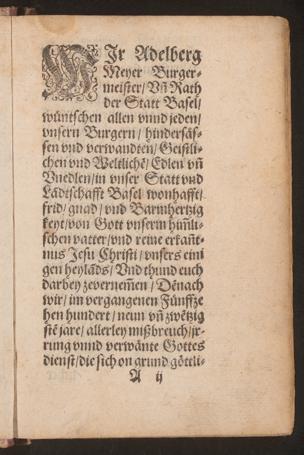 WJr Adelberg
Meyer Burger-
meister/ Vñ Rath
der Statt Basel/
wüntschen allen vnnd jeden/
vnsern Burgern/ hindersäs-
sen vnd verwandten/ Geistli-
chen vnd Weltlichē/ Edlen vñ
Vnedlen/ in vnser Statt vnd
Ladtschafft Basel wonhafft/
frid/ gnad/ vnd Barmhertzig
keyt/ von Gott vnserm himli-
schen vatter/ vnd reine erkañt-
nus Jesu Christi/ vnsers eini
gen heylāds/ Vnd thund euch
darbey zevernem̃en/ Dēnach
wir/ im vergangenen Fünffze
hen hundert/ neun vñ zwētzig
stē jare/ allerley mißbreuch/ jr-
rung vnnd verwānte Gottes
dienst/ die sich on grund göttli-
A ij